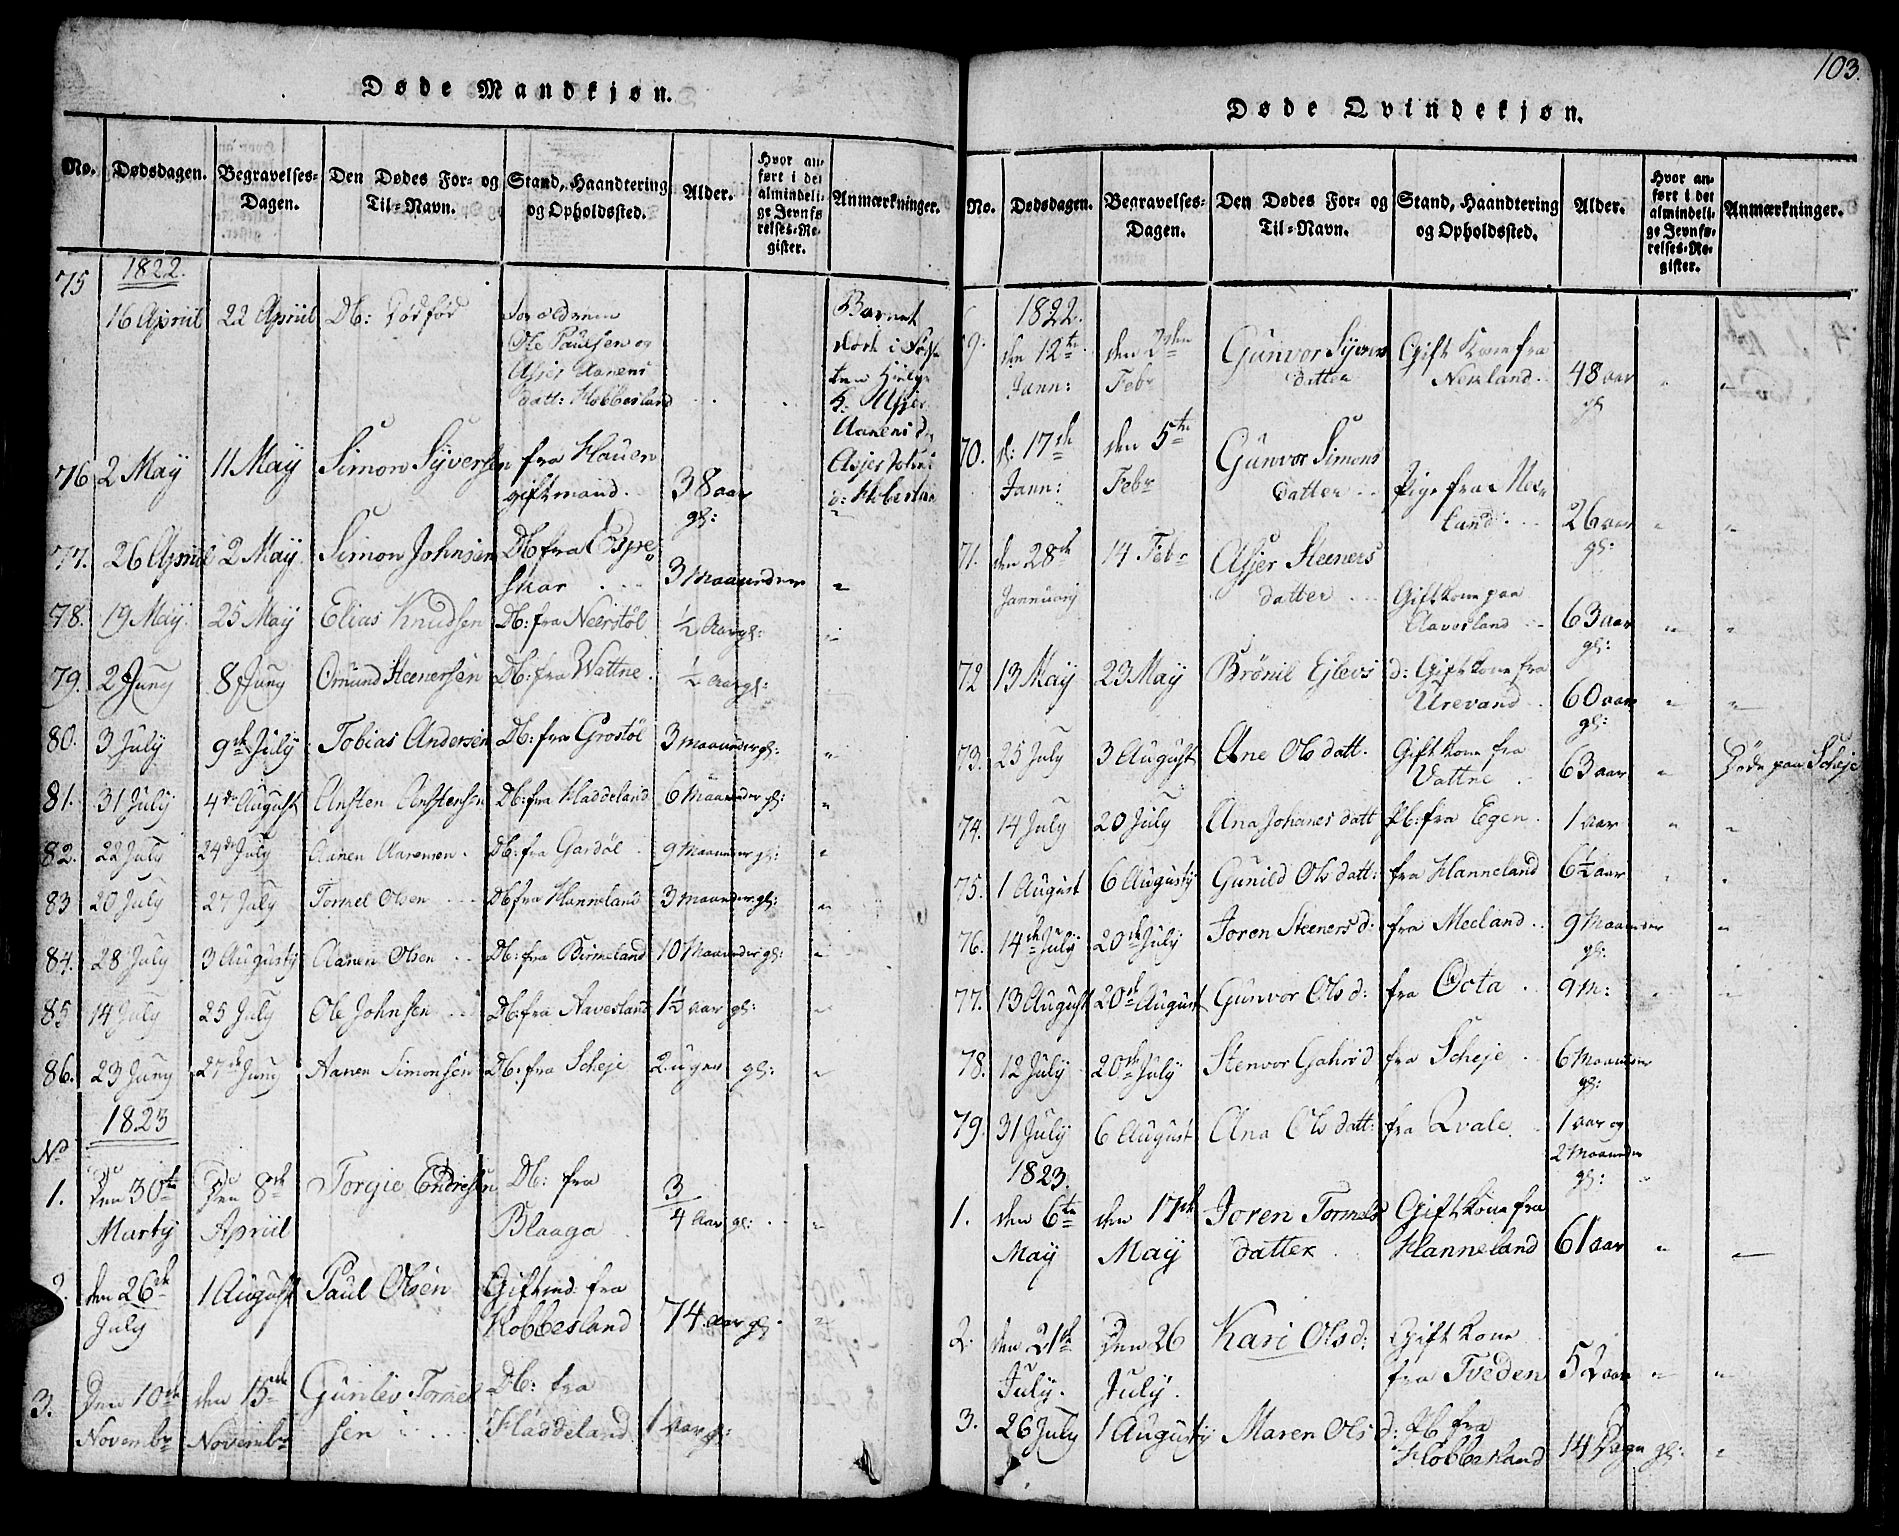 103.
Døde Mandkjøn.
No. Dødsdagen. Begravelses-Dagen. Den Dødes For- og Til-Navn. Stand, Haandtering og Opholdssted. Alder. Hvor anført i det almindelige Jevnførelses-Register. Anmærkninger.
75 1822.
16 Apriil 22 Apriil Db: Dødfød Forældrene
Ole Paulsen og
Asjer Aanens
datt: Høbbesland
Barnet
død i Føds
len
Aanens d
2 May 11 May Simon Syversen fra Hauen
76 giftmand. 38 aar
gl:
77. 26 Apriil 2 May Simon Johnsen Db fra Espe
skar 3 Maaneder "
78. 19 May 25 May Elias Knudsen Db: fra Neerstøl ½ Aar gl: "
79. 2 Juny 8 Juny Omund Steenersen Db: fra Wattne. ½ Aar gl: "
80. 3 July 9de July Tobias Andersen Db: fra Grostøl 3 Maaneder gl: "
81. 31 July 4de August Ansten Anstensen Db: fra Haddeland 6 Maaneder gl: "
82. 22 July 24de July Aanen Aanensen. Db: fra Gardøl. 9 Maaneder gl: "
83 20 July 27 July Tormel Olsen Db fra Hanneland 3 Maaneder gl: "
84. 28 July 3 Augusty Aanen Olsen Db: fra Birmeland 10 Maaneder gl: "
85 14 July 25 July Ole Johnsen Db: fra Aavesland 1½ aar gl: "
86. 23 Juny 27de Juny Aanen Simonsen Db: fra Scheje 2 uger gl: "
1823
No
1. Den 30te Den 8de Torgie Endresen Db: fra 3/4 Aar gl: "
Marty Apriil Blaaga
2. den 26de 1 August Paul Olsen Giftmd: fra
July Kobbesland 74 aar gl: "
3. Den 10de den 15de Gunlev Tormel Db: fra
Novembr Novembr sen Haddeland 1 aar gl:
Døde Qvindekjøn.
No. Dødsdagen. Begravelses-Dagen. Den Dødes For- og Til-Navn. Stand, Haandtering og Opholdssted. Alder. Hvor anført i det almindelige Jevnførelses-Register. Anmærkninger.
1822.
69. den 12te den 2den Gunvor Syvers Gift Kone fra
Jann: Febr datter Nerland. 48 aar gl " "
70. d: 17de den 5te Gunvor Simons
Jann: Febr datter Pige fra Nes
land. 26 aar gl: " "
71. den 28de 14 Febr Asjer Steeners
Jannuarj datter Gift Kone paa
Aavesland 63 aar gl: " "
72 13 May 23 May Brønil Ejlevs d: Gift Kone fra
Urevand 60 aar gl: " "
73. 25 July 3 August Ane Ols datt. Gift Kone fra
Vattne 63 aar " Døde paa Scheje
74. 14 July 20 July Ana Johanes datt Pb: fra Egen. 1 aar " "
75. 1 August 6 Augusty Gunild Ols datt: fra Hanneland 6½ aar " "
76. 14de July 20de July Joren Steeners d: fra Meeland 9 Maaneder gl: "
77. 13 August 20de August Gunvor Ols d: fra Octa 9 M: " "
78. 12 July 20de July Stenvor Gahrs d fra Scheje 6 Maaneder gl:
79. 31 July 6 August Ana Ols datt: fra Qvale. 1 aar og
2 Maaneder gl: "
1823.
1. den 6te den 17de Joren Tormels Gift Kone fra
May May datter Hanneland 61 aar " "
2. den 21de Den 26 Kari Ols d: Gift Kone
July. July. fra Tveden 52 aar " "
3. 26 July 1 Augusty Maren Ols d: Pb fra
Høbbesland 14 Dage gl: "